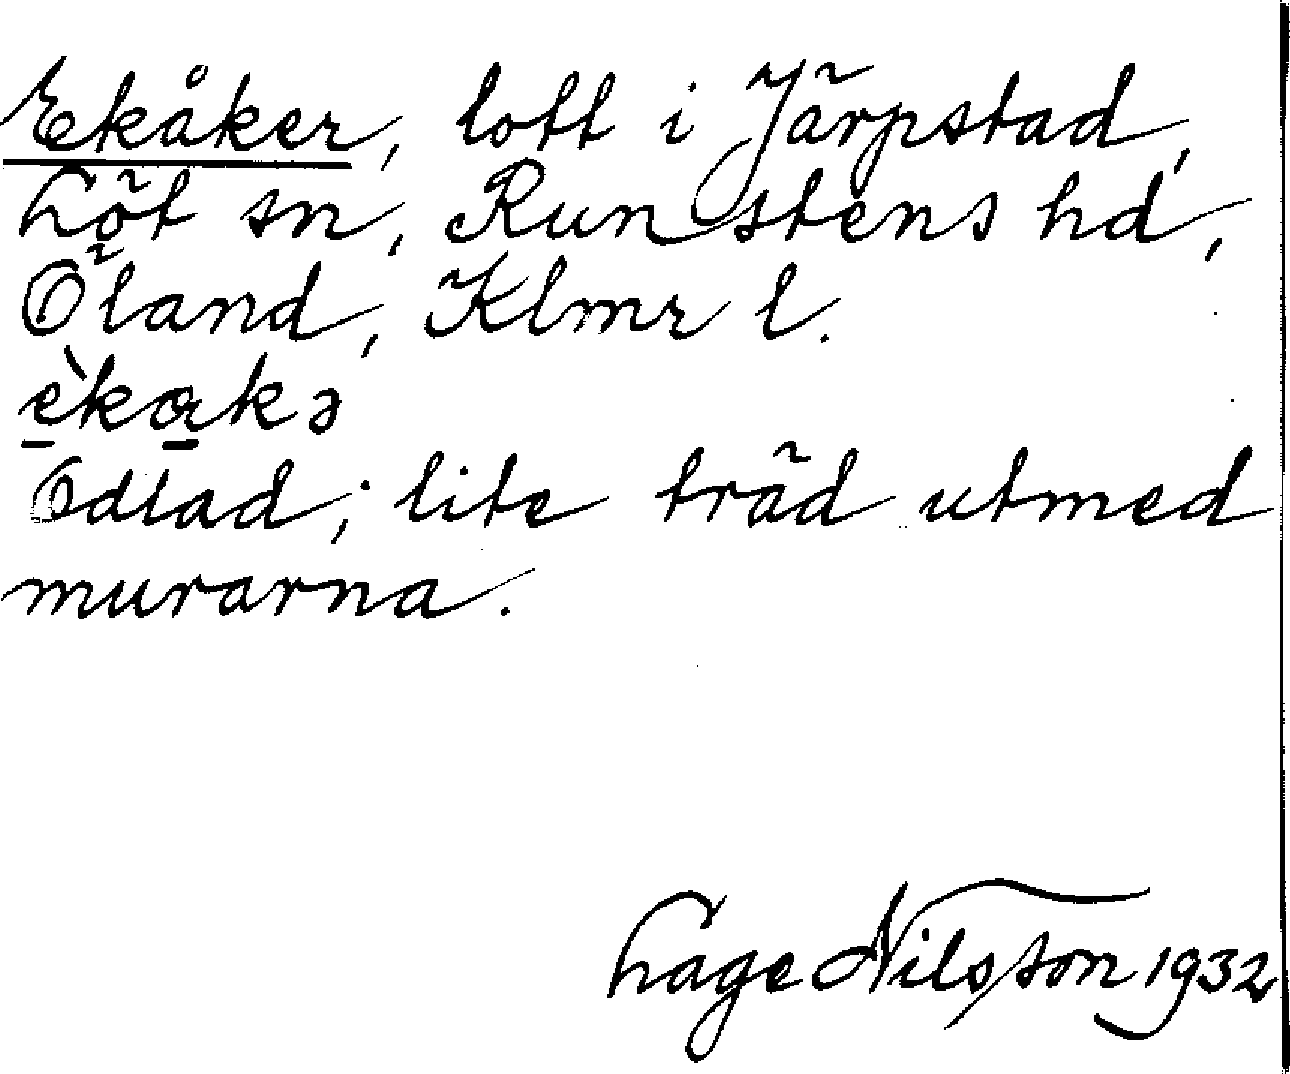 Ekåker, lott i Järpstad,
Löt sn, Runstens hd,
Öland, Klmr l.
èkɑkə
Odlad; lite träd utmed
murarna.
Lage Nilsson 1932